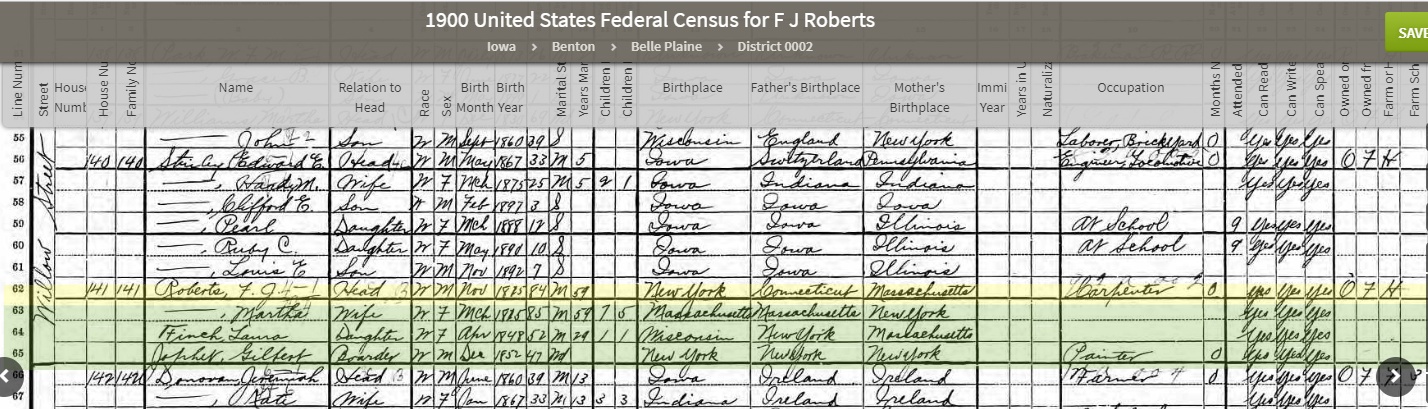 1900 United States Federal Census for F J Roberts
Iowa > Benton > Belle Plaine > District 0002
SAVE
Line Num Street House Numb House Nu Family No Name Relation to Head Race Sex Birth Month Birth Year Marital S Years Mar Children Children Birthplace Father's Birthplace Mother's Birthplace Immi Year Years in U Naturaliz Occupation Months N Attended Can Read Can Write Can Spea Owned or Owned fr Farm or H Farm Sch
Willow Street
55 John Son W M Sept 1860 39 S Wisconsin England New York Laborer, Brickyard 0 Yes Yes Yes
56 140 140 Edward E. Head W M May 1867 33 M 5 Iowa Switzerland Pennsylvania Engineer Locomotive 0 Yes Yes Yes O F H
57 —, M. Wife W F Mch 1875 25 M 5 2 1 Iowa Indiana Indiana Yes Yes Yes
58 —, Clifford E. Son W M Feb 1897 3 S Iowa Iowa Iowa
59 —, Pearl Daughter W F Mch 1888 12 S Iowa Iowa Illinois At School 9 Yes Yes Yes
60 —, Ruby C. Daughter W F May 1890 10 S Iowa Iowa Illinois At School 9 Yes Yes Yes
61 —, Louis E Son W M Nov 1892 7 S Iowa Iowa Illinois
62 141 141 Roberts, F. J Head W M Nov 84 M 59 New York Connecticut Massachusetts Carpenter 0 yes Yes Yes O F H
63 —, Martha Wife W F Mch 85 M 59 7 5 Massachusetts Massachusetts New York Yes Yes Yes
64 Finch, Laura Daughter W F Apr 1848 52 M 29 1 1 Wisconsin New York Massachusetts Yes Yes Yes
65 Japhet, Gilbert Boarder W M Dec 1852 47 Wd New York New York New York Painter 0 Yes Yes Yes
66 142 142 Donovan, Jeremiah Head W M June 1860 39 M 13 Iowa Ireland Ireland Farmer 0 Yes Yes Yes O F
67 —, Kate Wife W F Jan 1867 33 M 13 3 3 Indiana Ireland Ireland Yes Yes Yes